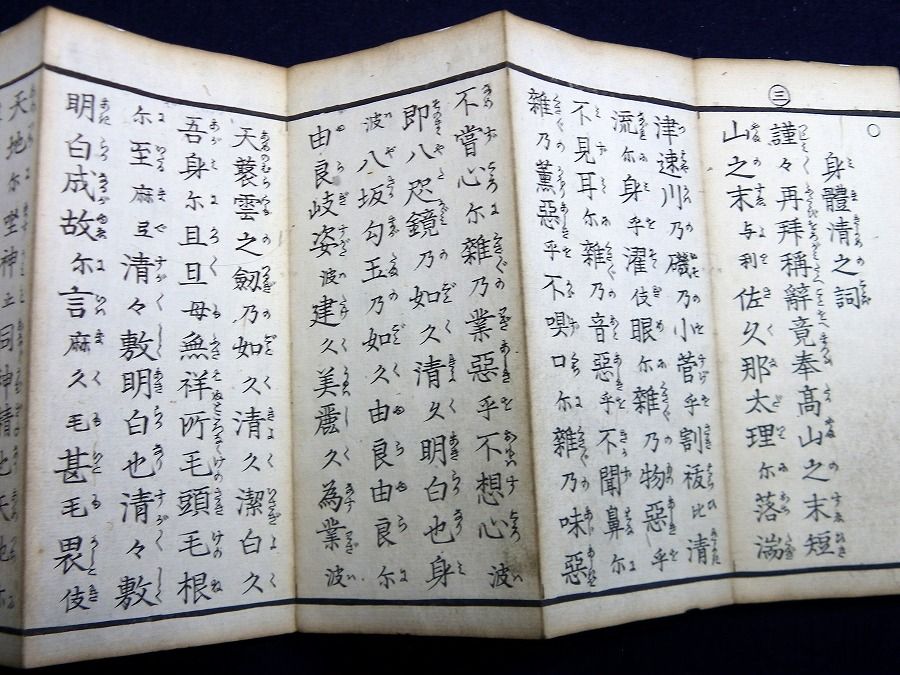 三
○
身體清之詞
謹々再拜稱辭竟奉高山之末短
山之末与利佐久那太理尓落湍
津速川乃磯乃小菅乎割祓比清
流尓身乎濯伎眼尓雜乃物惡乎
不見耳尓雜乃音惡乎不聞鼻尓
雜乃薫惡乎不嗅口尓雜乃味惡
不嘗心尓雜乃業惡乎不想心波
即八咫鏡乃如久清久明白也身
波八坂勾玉乃如久由良由良尓
由良岐姿波建久美麗久為業波
天叢雲之劔乃如久清久潔白久
吾身尓且旦母無祥所毛頭毛根
尓至麻弖清々敷明白也清々敷
明白成故尓言麻久毛甚毛畏伎
天地尓